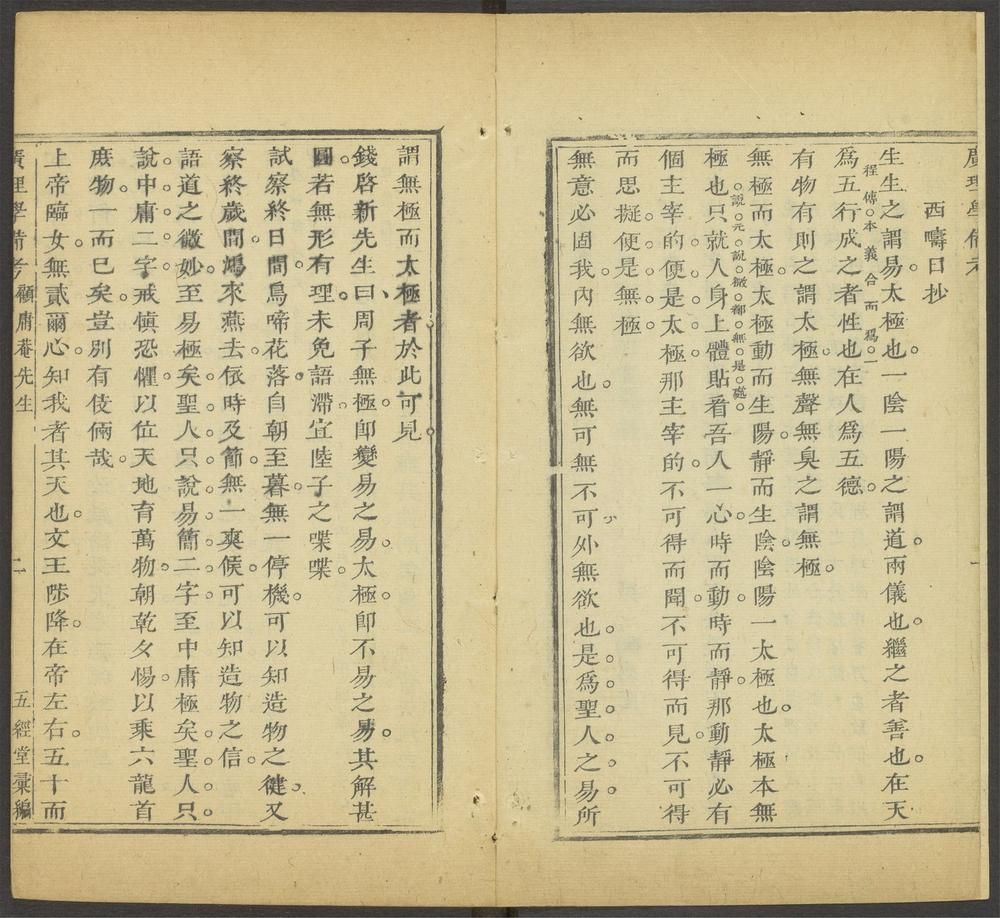 廣理學備考
西疇日抄
生生之謂易太極也一陰一陽之謂道兩儀也繼之者善也在天
程傳本義合而爲一
爲五行成之者性也在人爲五德
有物有則之謂太極無聲無臭之謂無極
無極而太極太極動而生陽靜而生陰陰陽一太極也太極本無
說元說微都無是處
極也只就人身上體貼看吾人一心時而動時而靜那動靜必有
個主宰的便是太極那主宰的不可得而聞不可得而見不可得
而思擬便是無極
無意必固我內無欲也無可無不可外無欲也是爲聖人之易所
謂無極而太極者於此可見
錢啓新先生曰周子無極卽變易之易太極卽不易之易其解甚
圓若無形有理未免語滯宜陸子之喋喋
試察終日間鳥啼花落自朝至暮無一停機可以知造物之健又
察終歲間鴻來燕去依時及節無一爽候可以知造物之信
語道之微妙至易極矣聖人只說易簡二字至中庸極矣聖人只
說中庸二字戒慎恐懼以位天地育萬物朝乾夕惕以乘六龍首
庶物一而已矣豈別有伎倆哉
上帝臨女無貳爾心知我者其天也文王陟降在帝左右五十而
廣理學備考 顧庸菴先生 二 五經堂彙編